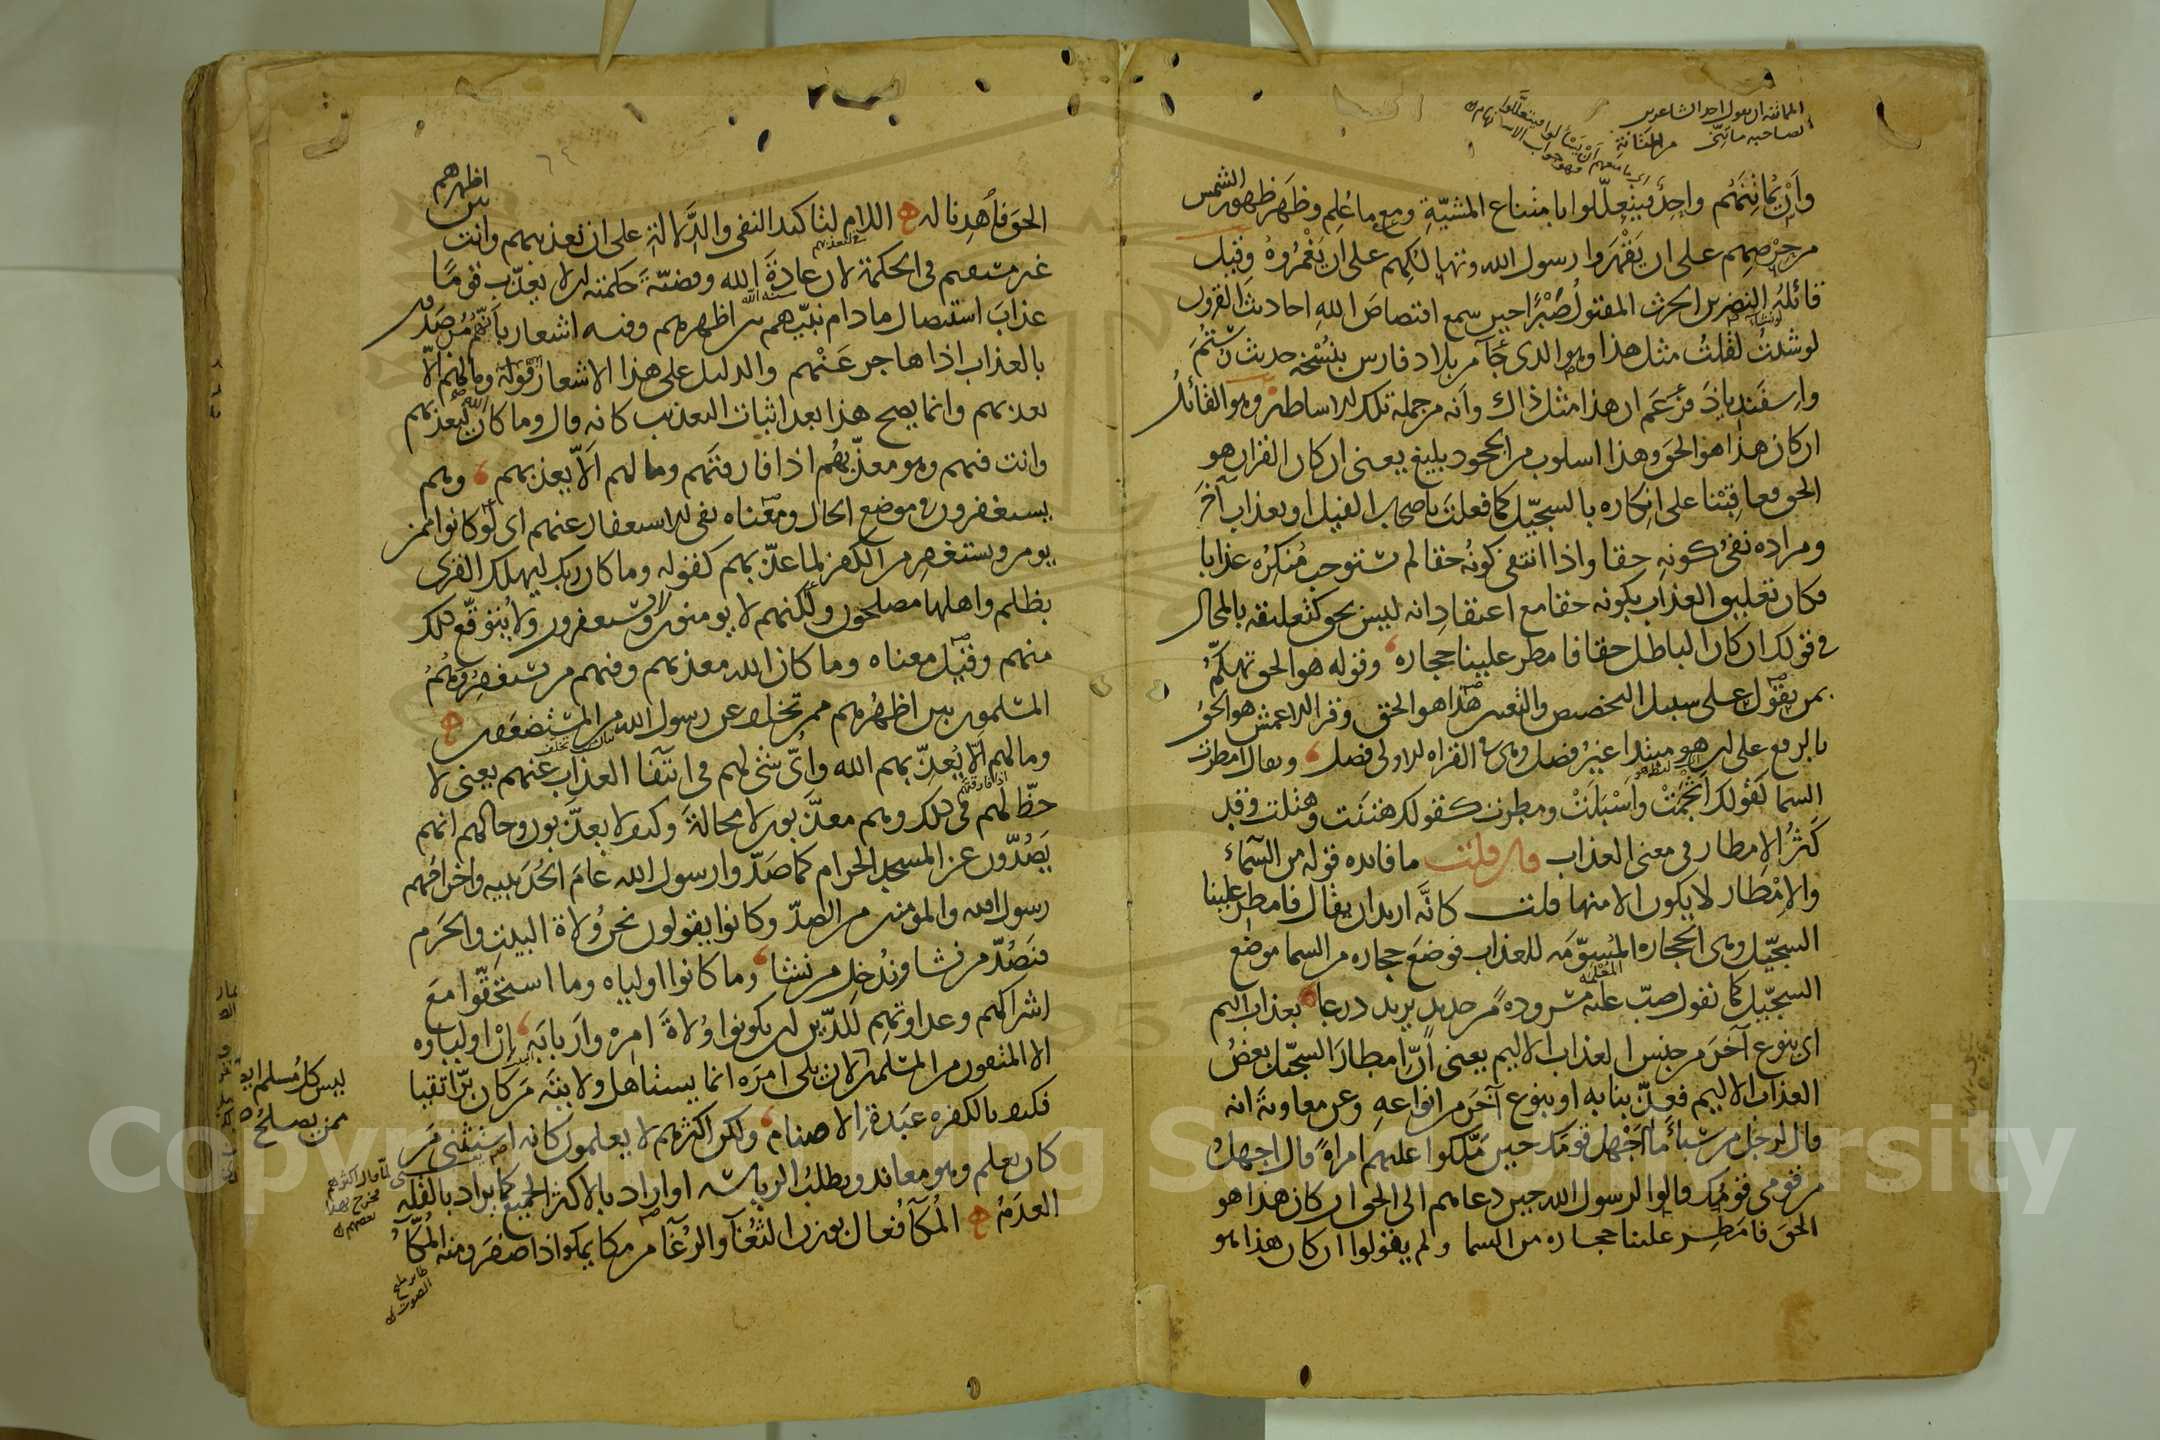 المماتنة ان يقول احد الشاعرين
لصاحبه ماتنّي من المتانة
وأن يماتنهم واحد فيتعلّلوا بامتناع المشيّة ومع ما عُلم وظهر ظهور الشمس
من حرصهم على ان يقهروا رسول الله وتهالكهم على ان يغمروه وقيل
قائله النضر بن الحرث المقتول صبرًا حين سمع اقتصاص الله احاديث القرون
لو شئت لقلت مثل هذا وهو الذى جآ من بلاد فارس بنسخه حديث رستم
واسفنديار فزعم ان هذا مثل ذاك وأنه من جملة تلك الاساطير وهو القائل
ان كان هذا هو الحق وهذا اسلوب من الجحود بليغ يعنى ان كان القران هو
الحق فعاقبنا على انكاره بالسجّيل كما فعلت باصحاب الفيل او بعذاب آخر
ومراده نفى كونه حقا واذا انتفى كونه حقا لم يستوجب منكره عذابا
فكان تعليق العذاب بكونه حقا مع اعتقاد انه ليس بحق كتعليقه بالمحال
فى قولك ان كان الباطل حقا فامطر علينا حجاره وقوله هو الحق تهكّم
بمن يقول على سبيل التخصيص والتعيين هذا هو الحق وقرا الاعمش هو الحق
بالرفع على ان هو مبتدا غير فصل وهى فى القراه الاولى فصل ويقال امطرت
السما كقولك انجمت وأسبلت ومطرت كقولك هتنت وهتلت وقد
كثر الإمطار فى معنى العذاب فان قلت ما فايده قوله من السمآء
والامطار لا يكون الا منها قلت كانّه اريد ان يقال فامطر علينا
السجّيل وهى الحجاره المسوّمه للعذاب فوضع حجاره من السما موضع
السجّيل كما تقول صبّ عليه مسرودةً من حديد يريد درعا بعذاب اليم
اى بنوع آخر من جنس العذاب الاليم يعنى انّ امطار السجّيل بعض
العذاب الاليم فعذّبنا به او بنوع آخر من انواعه وعن معاوية انه
قال لرجل من سبأ ما اجهل قومك حين ملّكوا عليهم امراة قال اجهل
من قومى قومك قالوا لرسول الله حين دعاهم الى الحق ان كان هذا هو
الحق فامطر علينا حجاره من السما ولم يقولوا ان كان هذا هو
الحق فأهدنا له اللام لتاكيد النفى والدّلالة على ان تعذيبهم وانت بين اظهرهم
غير مستقيم فى الحكمة لان عادة الله وقضيّة حكمته الا يعذّب قومًا
عذاب استيصال ما دام نبيّهم بين اظهرهم وفيه اشعار بأنهم مرصدون
بالعذاب اذا هاجر عنهم والدليل على هذا الاشعار قوله وما لهم ألّا
يعذبهم الله وانما يصح هذا بعد اثبات التعذيب كانه قال وما كان الله ليعذبهم
وانت فيهم وهو معذّبهم اذا فارقتهم وما لهم ألّا يعذبهم وهم
يستغفرون فى موضع الحال ومعناه نفى الاستغفار عنهم اى لو كانوا ممن
يومن ويستغفر من الكفر لما عذّبهم كقوله وما كان ربك ليهلك القرى
بظلم واهلها مصلحون ولكنهم لا يومنون ولا يستغفرون ولا يتوقّع ذلك
منهم وقيل معناه وما كان الله معذبهم وفيهم من يستغفر وهم
المسلمون بين اظهرهم ممن تخلف عن رسول الله من المستضعفين
وما لهم ألّا يعذّبهم الله وأىّ شى لهم فى انتفآ العذاب عنهم يعنى لا
حظّ لهم فى ذلك وهم معذّبون لا محالة وكيف لا يعذّبون وحالهم انهم
يصدّون عن المسجد الحرام كما صدّوا رسول الله عام الحديبيه واخراجهم
رسول الله والمومنين من الصدّ وكانوا يقولون نحن ولاة البيت والحرم
فنصدّ من نشا وندخل من نشا وما كانوا اولياه وما استحقّوا مع
اشراكهم وعداوتهم للدّين ان يكونوا ولاة امره وأربابه إن اولياوه
الا المتقون من المسلمين
ليس كل مسلم ايضا
ممن يصلح
لان يلى امره انما يستاهل ولايته من كان برّا تقيا
فكيف بالكفره عبدة الاصنام ولكن اكثرهم لا يعلمون كانه استثنى من
كان يعلم وهو معاند ويطلب الرياسه او اراد بالاكثر الجميع كما يراد بالقلّه
العدم المُكآ فُعال بوزن الثُّغآ والرُّغآ من مكا يمكو اذا صفر ومنه المُكّآ
طاير مليح
الصوت